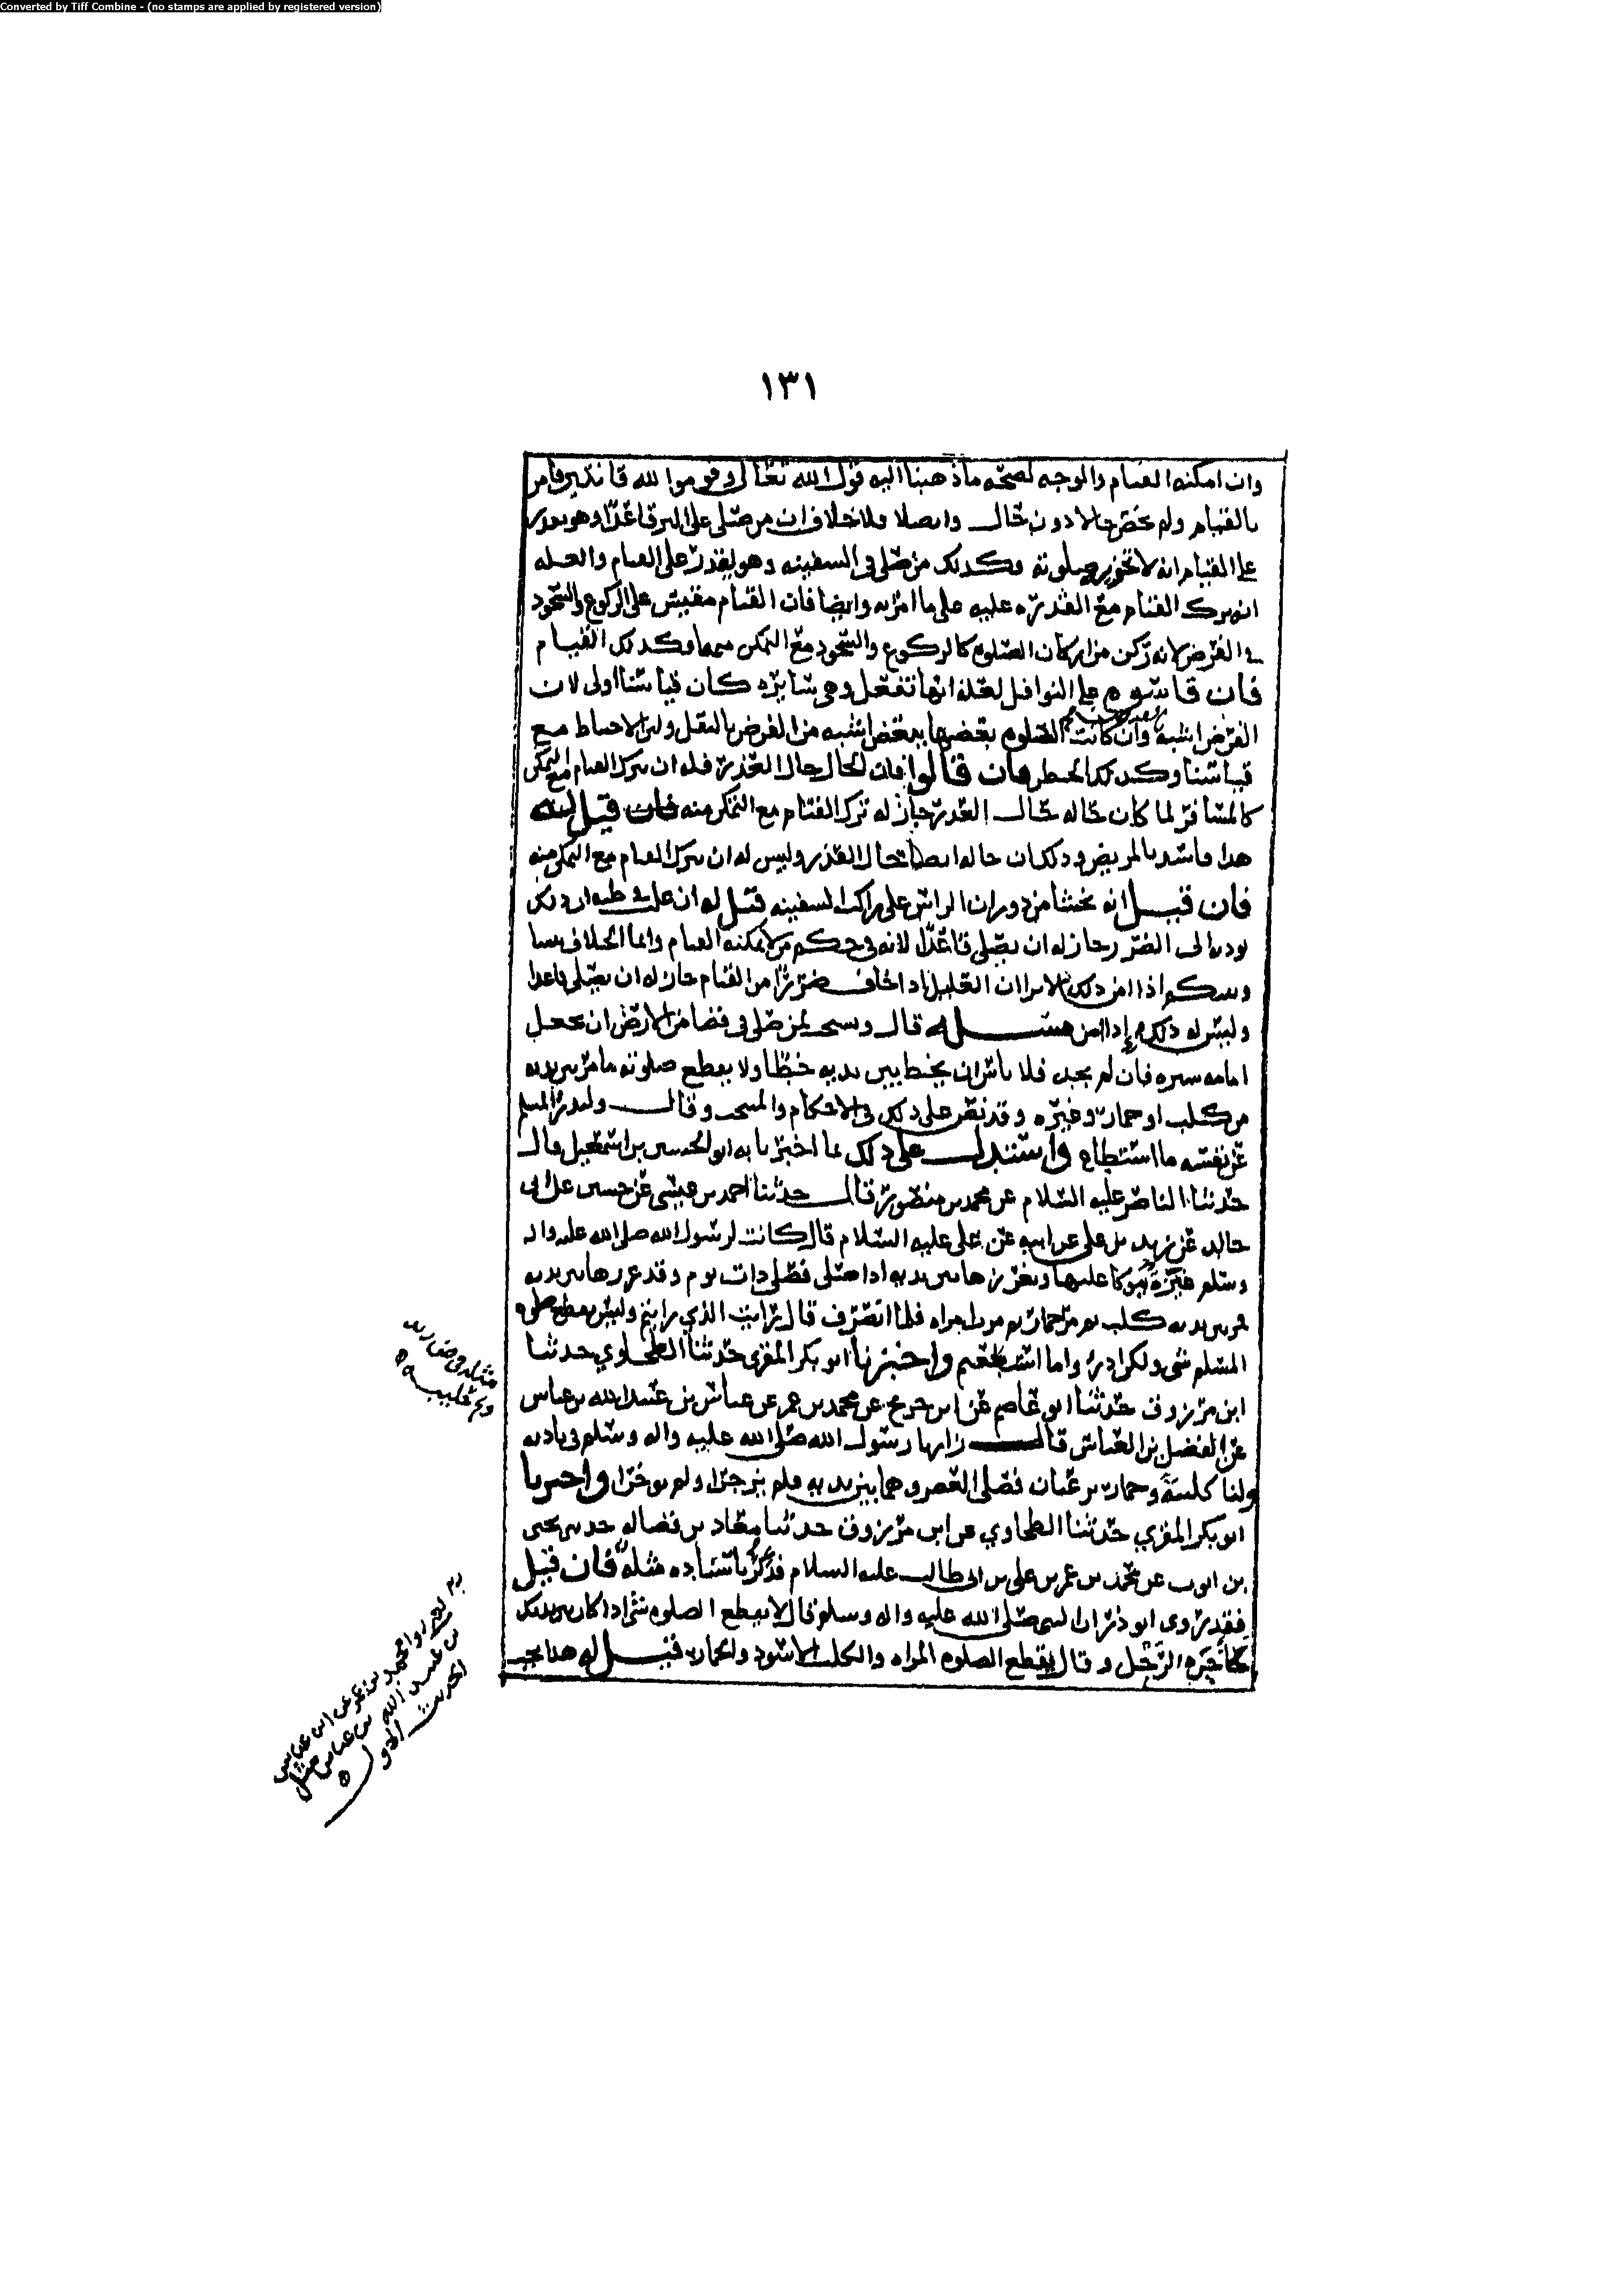 Converted by Tiff Combine - (no stamps are applied by registered version)
١٣١
وان امكنه القيام والوجه لصحة ما ذهبنا اليه قول الله تعالى وقوموا لله قانتين فامر
بالقيام ولم يخص حالا دون حال وايضا فلا خلاف ان من صلى على البر قاعدا وهو يقدر
على القيام انه لا تجوز صلوته وكذلك من صلى في السفينه وهو يقدر على القيام والعله
انه ترك القيام مع القدره عليه على ما امر به وايضا فان القيام مقيس على الركوع والسجود
في الفرض لانه ركن من اركان الصلوه كالركوع والسجود مع التمكن منهما وكذلك القيام
فان قاسوه على النوافل لعلة انها تفعل وهي سايره كان قياسنا اولى لان
الفرض اشبه وان كانت الصلوه بعضها ببعض اشبه من الفرض بالنفل ولان الاحتياط مع
قياسنا وكذلك الحظر فان قالوا فان الحال حال العذر فله ان يترك القيام مع التمكن
كالمسافر لما كان حاله حال العذر جاز له ترك القيام مع التمكن منه فان قيل له
هذا فاسد بالمريض وذلك ان حاله ايضا حال العذر وليس له ان يترك القيام مع التمكن منه
فان قيل انه يخشا من دوران الراس على راكب السفينه قيل له ان غلب في ظنه ان ذلك
يوديه الى الضرر جاز له ان يصلي قاعدا لانه في حكم من لا يمكنه القيام وانما الخلاف بيننا
وبينكم اذا امن ذلك الا ترا ان العليل اذا خاف ضررا من القيام جاز له ان يصلي قاعدا
وليس له ذلك إذا امن مسئلة قال ويستحب لمن صلى في فضا من الارض ان يجعل
امامه ستره فان لم يجد فلا باس ان يخط بين يديه خطا ولا يقطع صلوته ما مر بين يديه
من كلب او حمار وغيره وقد نص على ذلك في الاحكام والمنتخب وقال وليدر المسلم
عن نفسه ما استطاع واستدل على ذلك بما اخبرنا به ابو الحسين بن اسمعيل قال
حدثنا الناصر عليه السلام عن محمد بن منصور قال حدثنا احمد بن عيسى عن حسين عن ابي
خالد عن زيد بن علي عن ابيه عن علي عليه السلام قال كانت لرسول الله صلى الله عليه واله
وسلم عنزة يتوكا عليها ويغرزها بين يديه اذا صلى فصلى ذات يوم وقد غرزها بين يديه
فمر بين يديه كلب ثم مر حمار ثم مرت امراه فلما انصرف قال رايت الذي رايتم وليس يقطع صلوه
المسلم شي ولكن ادرؤا ما استطعتم واخبرنا ابو بكر المقري حدثنا الطحاوي حدثنا
ابن مرزوق حدثنا ابو عاصم عن ابن جريج عن محمد بن عمر عن عباس بن عبد الله بن عباس
عن الفضل بن العباس قال زارنا رسول الله صلى الله عليه واله وسلم في باديه
ولنا كلبة وحمار يرعيان فصلى العصر وهما بين يديه فلم يزجرا ولم يوخرا واخبرنا
ابو بكر المقري حدثنا الطحاوي عن ابن مرزوق حدثنا معاذ بن فضاله حدثني يحيى
بن ايوب عن محمد بن عمر بن علي بن ابي طالب عليه السلام فذكر باسناده مثله فان قيل
فقد روى ابو ذر ان النبي صلى الله عليه واله وسلم قال لا يقطع الصلوه شي اذا كان بين يديك
كآخرة الرحل وقال يقطع الصلوه المراه والكلب الاسود والحمار قيل له هذا
الحديث الاول